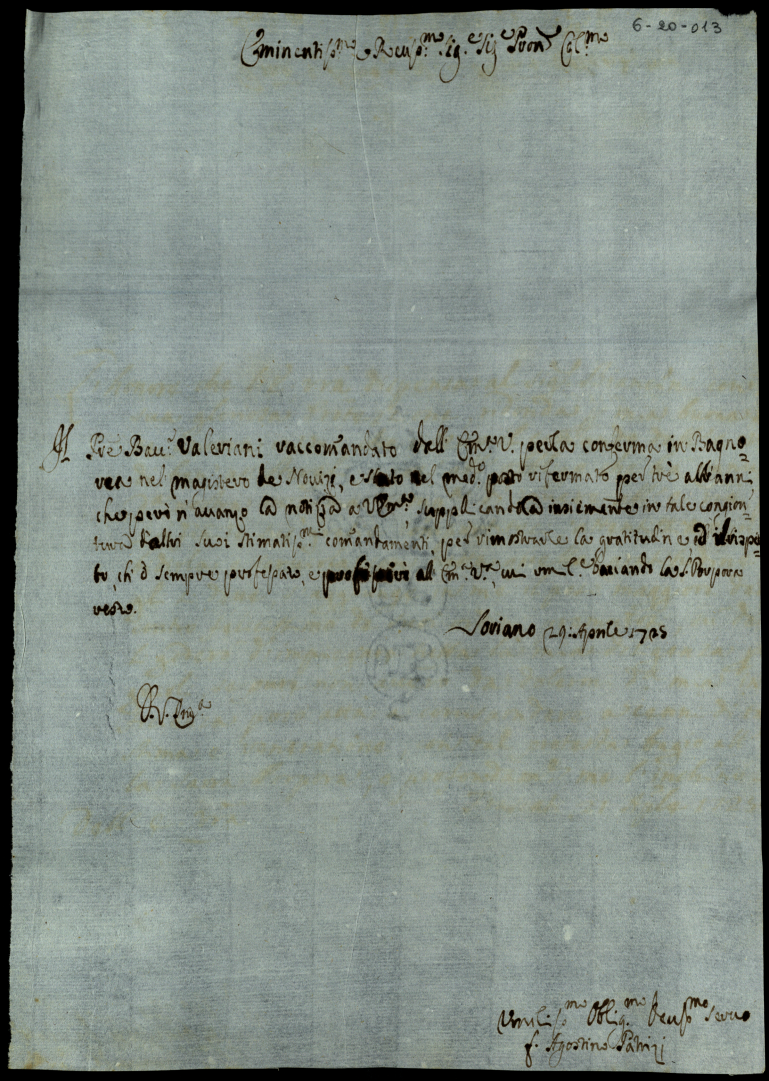 6-20-013
Eminentiss.mo e Reuss.mo Sig.e Sig.e Pron. Col.mo
Il Pre Bau.a Valeriani raccomandato dall' Em.a V. per la conferma in Bagno=
rea nel magistero de Nouizi, e stato nel med.o posto rifermato per trè altri anni
che però n' auanzo la notizia a V. Em.a, supplicandola insiememente in tale congion=
tura d'altri suoi stimatiss.mi comandamenti, per rimostrarle la gratitudine ed il rispe=
tto, ch'ò sempre professato, e professerò all' Em.a V.a, cui umil.e baciando la S. Porpora
resto.
Soriano 29: Aprile 1725
D. V. Em.a
Umiliss.mo Oblig.mo Deuss.mo Seruo
f. Agostino Patrizi